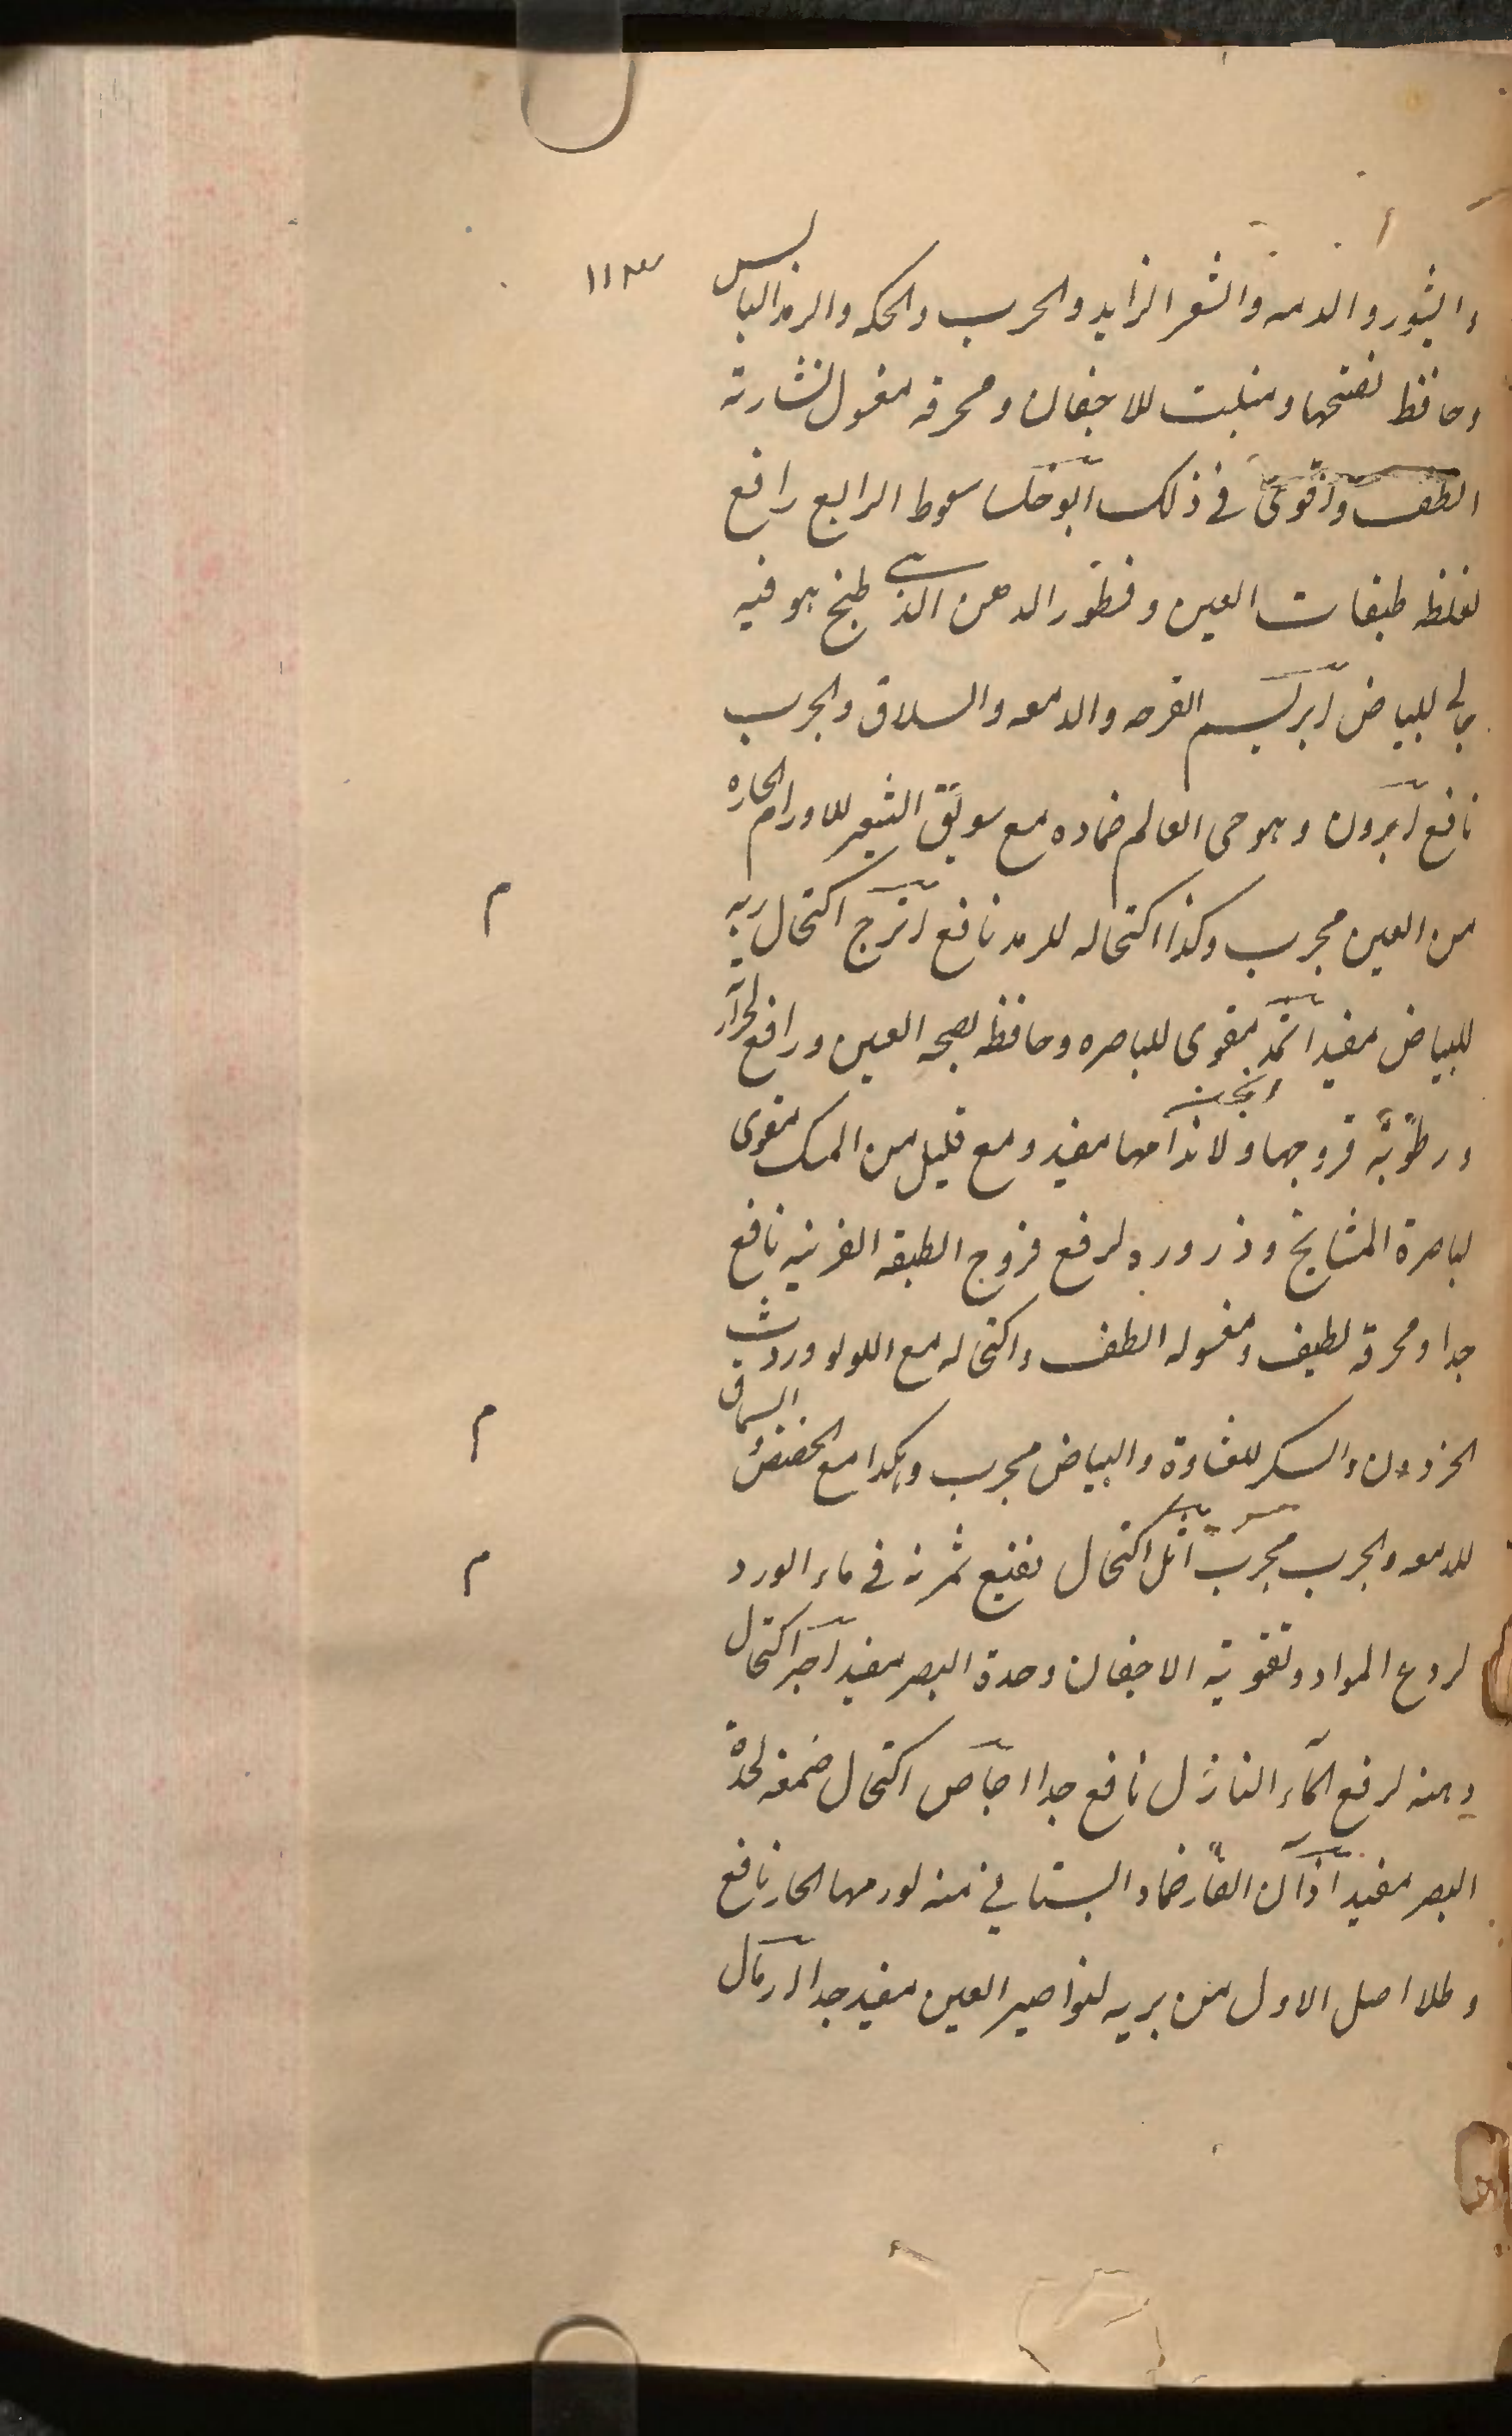 ١١٣
والبثور والدمعه والشعر الزايد والجرب والحكه والرمد اليابس
وحافظ لصحتها ومنبت للاجفان ومحرقه مغسول نشارته
الطف واقوى فى ذلك ابوخلسا سعوط الرابع رافع
لغلظ طبقات العين وقطور الدهن الذى طبخ هو فيه
جالى للبياض ابريسم القرحه والدمعه والسلاق والجرب
نافع ابرون وهو حى العالم ضماده مع سويق الشعير للاورام الحاره
من العين مجرب وكذا اكتحاله للرمد نافع اترج اكتحال ربه
للبياض مفيد اثمد مقوى للباصره وحافظ لصحه العين ورافع لحراره
ورطوبة قروحها ولاندامها مفيد ومع قليل من المسك مقوى
لباصرة المشايخ وذروره لرفع قروح الطبقه القرنيه نافع
جدا ومحرقه لطيف ومغسوله الطف واكتحاله مع اللولو وروث
الحرذون والسكر للغشاوة والبياض مجرب وهكذا مع الحضض والسماق
للدمعه والجرب مجرب اثل اكتحال نقيع ثمرته فى ماء الورد
لردع المواد وتقوية الاجفان وحدة البصر مفيد اجر اكتحال
دهنه لرفع الماء النازل نافع جدا اجاص اكتحال صمغه لحدة
البصر مفيد اذان الفار ضماد البستانى منه لورمها الحار نافع
وطلا اصل الاول من بريه لنواصير العين مفيد جدا ارمال
م
م
م